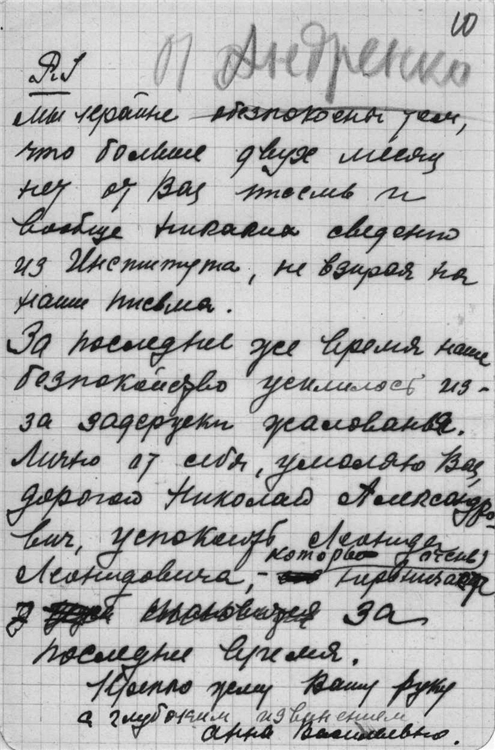 10
от Андренко
P.S
Мы крайне обезпокоены тем,
что больше двух месяц
нет от Вас писемь и
вообще никаких сведений
из Института, не взирая на
наши письма.
За последнее же время наше
безпокойство усилилось из-
за задержки жалованья.
Лично от себя, умоляю Вас,
дорогой Николай Александро
вич, успокоить Леонида
который очень
Леонидовича, - нервничает
за
последнее время.
Крепко жму Вашу руку
с глубоким извинением
Анна Васильевна.